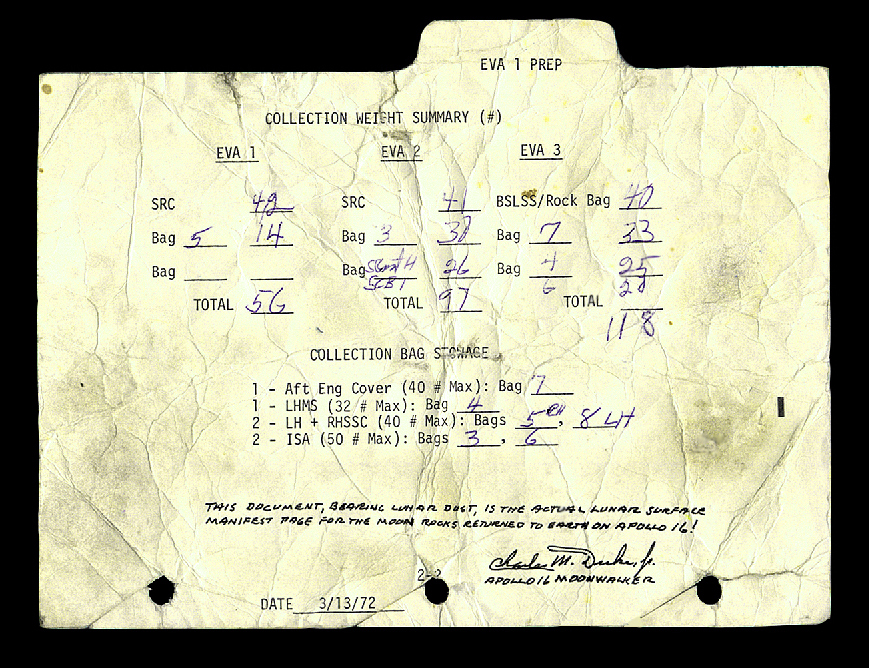 EVA 1 PREP
COLLECTION WEIGHT SUMMARY (#)
EVA 1 EVA 2 EVA 3
SRC 42 SRC 41 BSLSS/Rock Bag 40
Bag 5 14 Bag 3 30 Bag 7 33
Bag Bag 26 Bag 4 25
SCB1 6 20
TOTAL 56 TOTAL 97 TOTAL
118
COLLECTION BAG STOWAGE
1 - Aft Eng Cover (40 # Max): Bag 7
1 - LHMS (32 # Max): Bag 4
2 - LH + RHSSC (40 # Max): Bags 5 RH, 8 LH
2 - ISA (50 # Max): Bags 3, 6
THIS DOCUMENT, BEARING LUNAR DUST, IS THE ACTUAL LUNAR SURFACE
MANIFEST PAGE FOR THE MOON ROCKS RETURNED TO EARTH ON APOLLO 16!
Charles M. Duke, Jr.
2-2 APOLLO 16 MOONWALKER
DATE 3/13/72